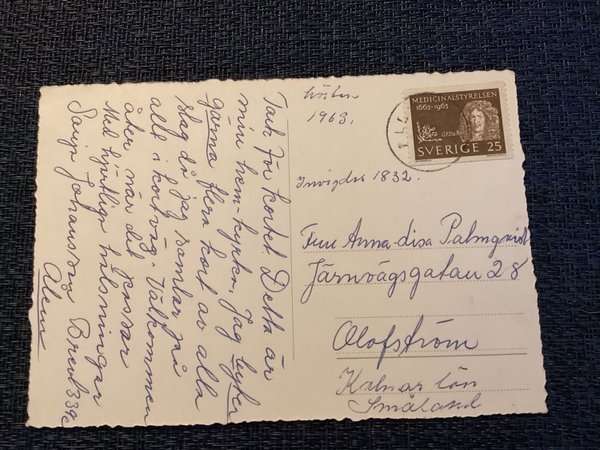 Tack för kortet. Detta är
min hem-kyrkan. Jag byter
gärna flera kort av alla
slag då jag samlar på
allt i kortväg. Välkommen
åter när det passar
Med hjärtliga hälsningar
Sonja Johansson
Alem
hösten
1963.
MEDICINALSTYRELSEN
1663-1963
SVERIGE 25
Invigdes 1832.
Fru Anna-disa Palmqvist
Järnvägsgatan 28
Olofström
Kalmar län
Småland